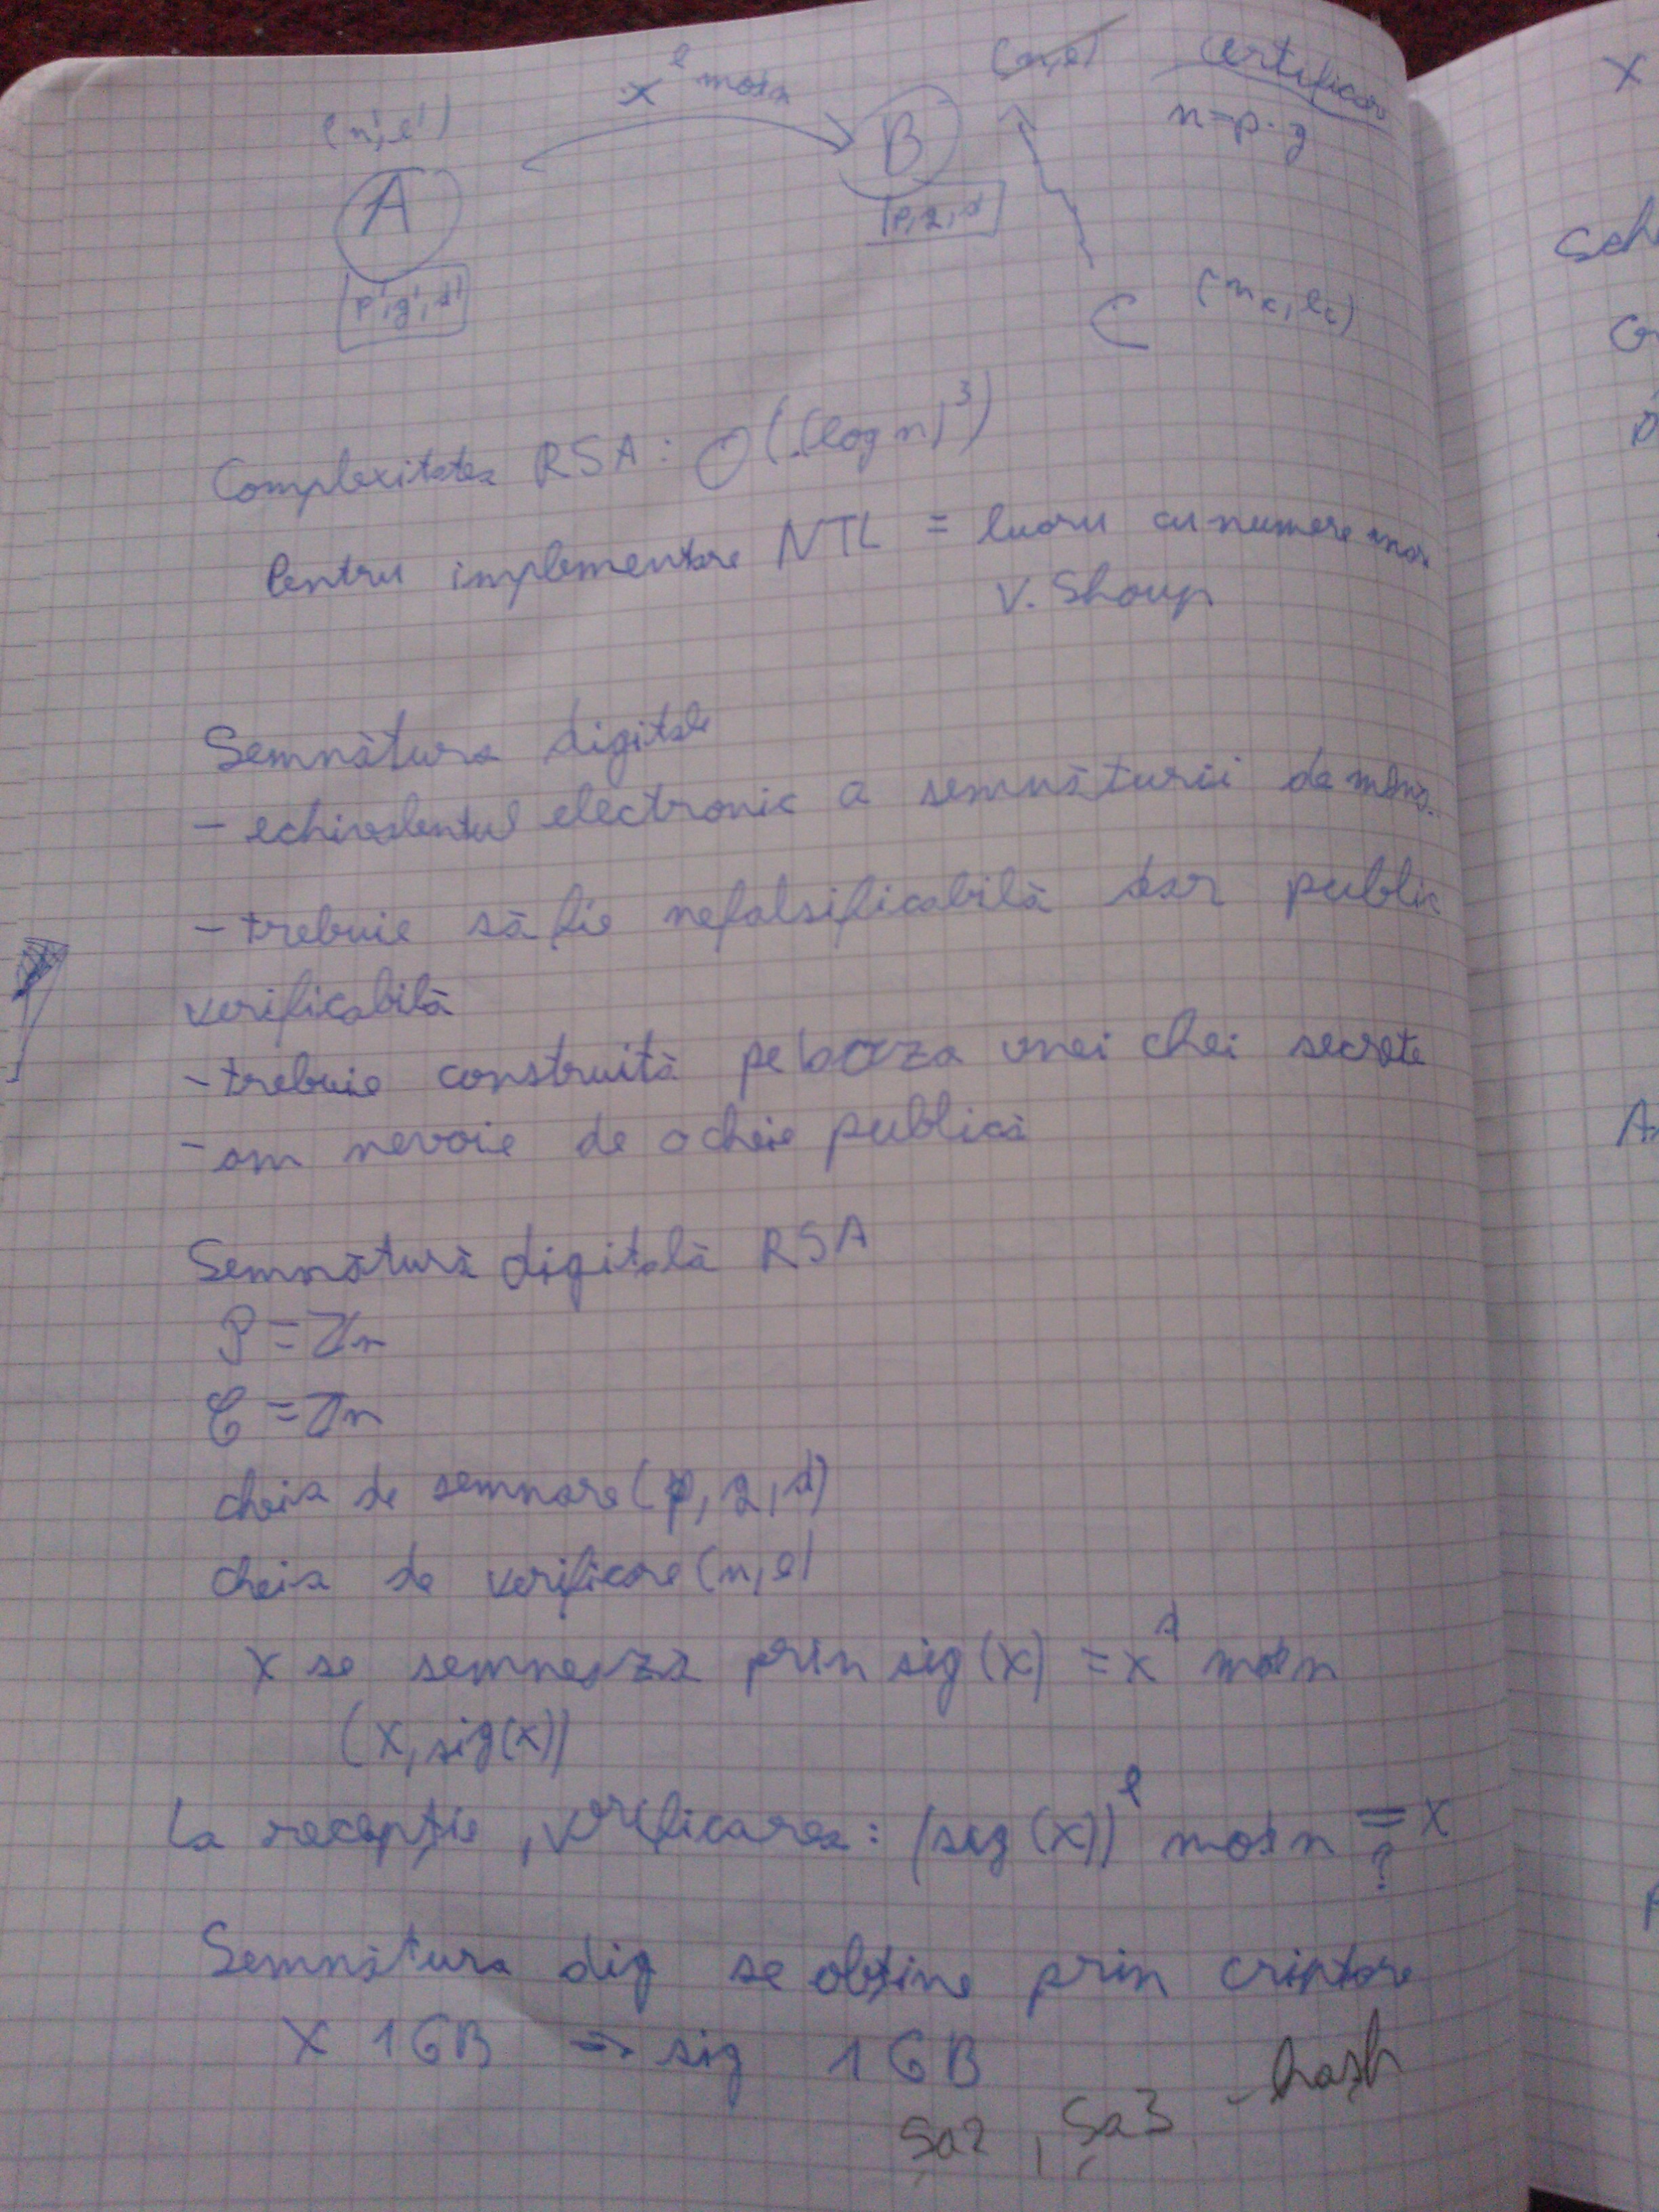 (n,e) certificar
x^e mod n
(n',e') B n=p·q
A [p,q,d]
[p',q',d'] C (n_c,e_c)
Complexitatea RSA: O((log n)^3)
Pentru implementare NTL = lucru cu numere mari
V. Shoup
Semnătura digitale
- echivalentul electronic a semnăturii de mână.
- trebuie să fie nefalsificabilă dar public
verificabilă
- trebuie construită pe baza unei chei secrete
- am nevoie de o cheie publică
Semnătură digitală RSA
P = Zn
C = Zn
cheia de semnare (p,q,d)
cheia de verificare (n,e)
x se semnează prin sig(x) = x^d mod n
(x, sig(x))
La recepție, verificarea: (sig(x))^e mod n =? x
Semnătura dig se obține prin criptare
X 1GB => sig 1GB
Șa2, Șa3 - hash
X
Sch